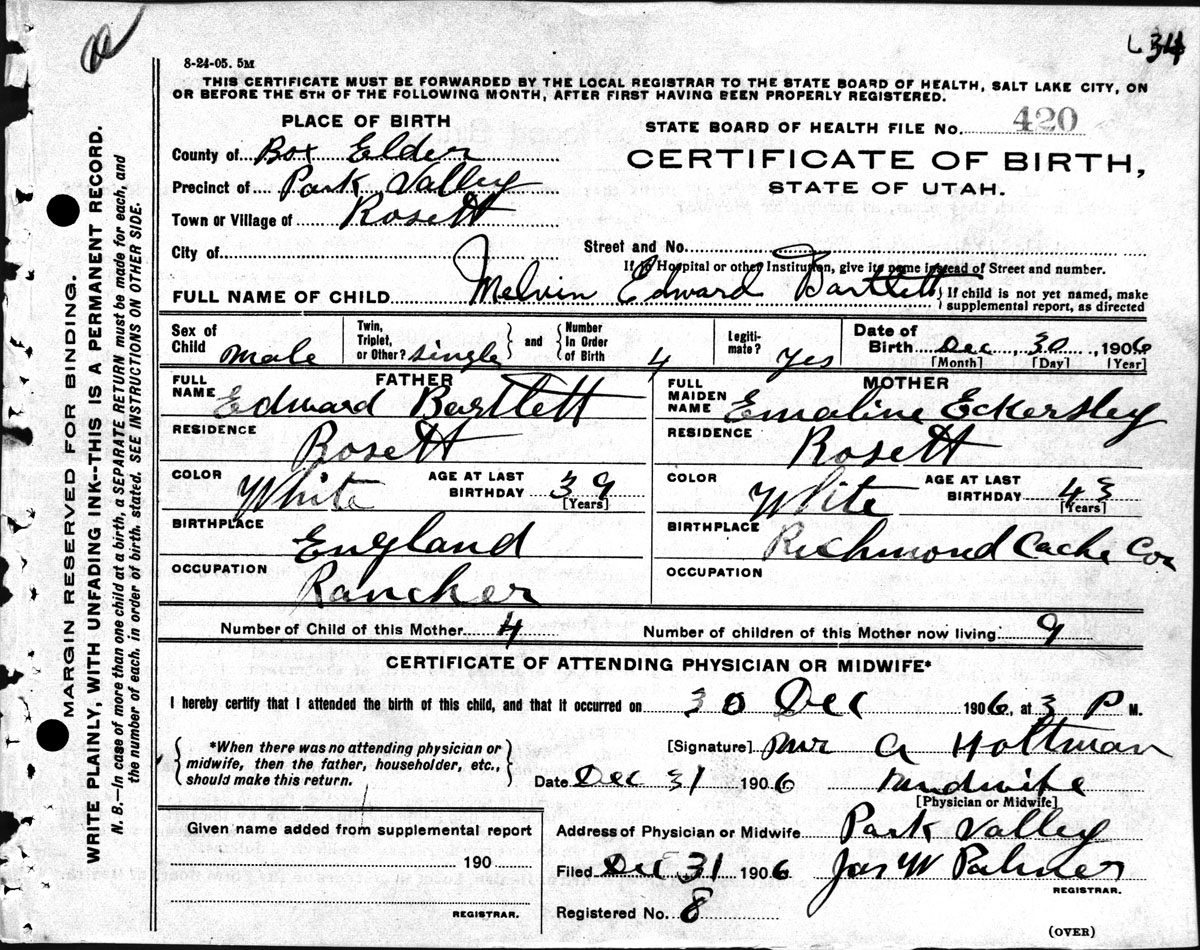 634
8-24-05. 5M
THIS CERTIFICATE MUST BE FORWARDED BY THE LOCAL REGISTRAR TO THE STATE BOARD OF HEALTH, SALT LAKE CITY, ON
OR BEFORE THE 5TH OF THE FOLLOWING MONTH, AFTER FIRST HAVING BEEN PROPERLY REGISTERED.
PLACE OF BIRTH
STATE BOARD OF HEALTH FILE No. 420
County of Box Elder
CERTIFICATE OF BIRTH,
Precinct of Park Valley
STATE OF UTAH.
Town or Village of Rosett
City of
Street and No.
If in Hospital or other Institution, give its name instead of Street and number.
FULL NAME OF CHILD Melvin Edward Bartlett
{ If child is not yet named, make
supplemental report, as directed
Sex of Child male
Twin, Triplet, or Other? single } and { Number In Order of Birth 4
Legiti-mate? Yes
Date of Birth Dec, 30, 1906
[Month] [Day] [Year]
FATHER
FULL NAME Edward Bartlett
RESIDENCE Rosett
COLOR White
AGE AT LAST BIRTHDAY 39
[Years]
BIRTHPLACE England
OCCUPATION Rancher
MOTHER
FULL MAIDEN NAME Emaline Eckersley
RESIDENCE Rosett
COLOR White
AGE AT LAST BIRTHDAY 43
[Years]
BIRTHPLACE Richmond Cache Co
OCCUPATION
Number of Child of this Mother 4
Number of children of this Mother now living 9
CERTIFICATE OF ATTENDING PHYSICIAN OR MIDWIFE*
I hereby certify that I attended the birth of this child, and that it occurred on 30 Dec 1906, at 3 P M.
{ *When there was no attending physician or
midwife, then the father, householder, etc.,
should make this return. }
[Signature] A Holtman
Date Dec 31 1906 midwife
[Physician or Midwife]
Given name added from supplemental report
190
REGISTRAR.
Address of Physician or Midwife Park Valley
Filed Dec 31 1906 Jas W Palmer
REGISTRAR.
Registered No. 8
(OVER)
MARGIN RESERVED FOR BINDING.
WRITE PLAINLY, WITH UNFADING INK--THIS IS A PERMANENT RECORD.
N. B.—In case of more than one child at a birth, a SEPARATE RETURN must be made for each, and
the number of each, in order of birth, stated. SEE INSTRUCTIONS ON OTHER SIDE.